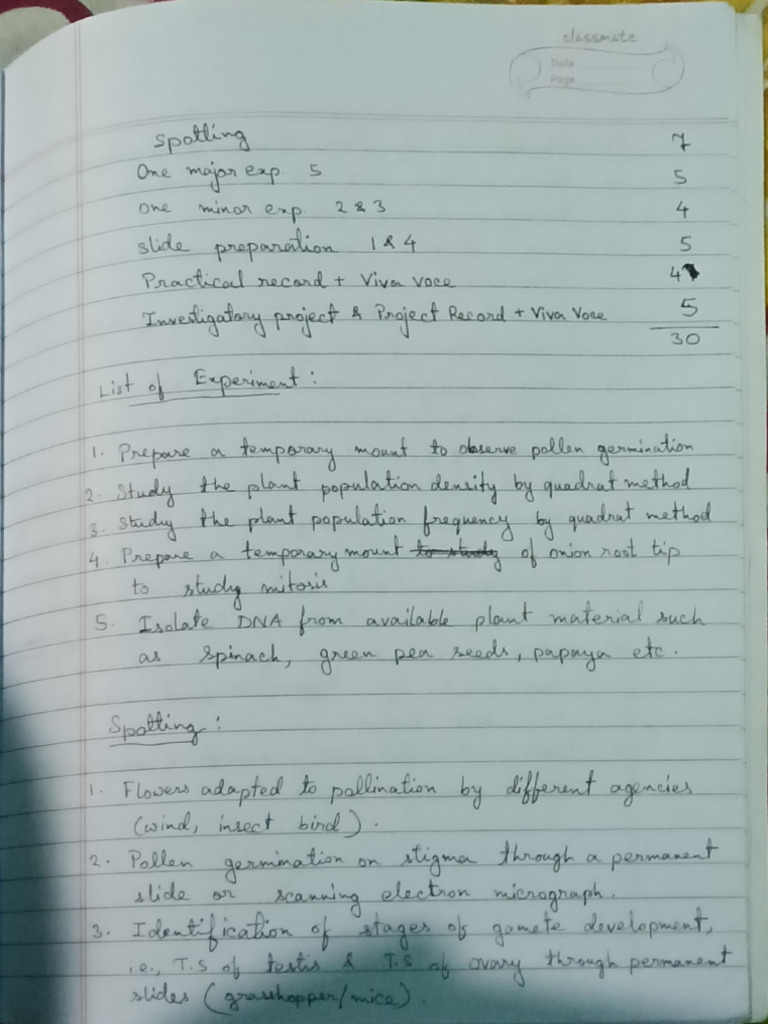 classmate
Date
Page
Spotting 7
One major exp 5 5
One minor exp 2 & 3 4
slide preparation 1 & 4 5
Practical record + Viva voce 4
Investigatory project & Project Record + Viva Voce 5
30
List of Experiment :
1. Prepare a temporary mount to observe pollen germination
2. Study the plant population density by quadrat method
3. Study the plant population frequency by quadrat method
4. Prepare a temporary mount to study of onion root tip
to study mitosis
5. Isolate DNA from available plant material such
as spinach, green pea seeds, papaya etc.
Spotting :
1. Flowers adapted to pollination by different agencies
(wind, insect bird).
2. Pollen germination on stigma through a permanent
slide or scanning electron micrograph.
3. Identification of stages of gamete development,
i.e., T.S of testis & T.S of ovary through permanent
slides (grasshopper/mice).